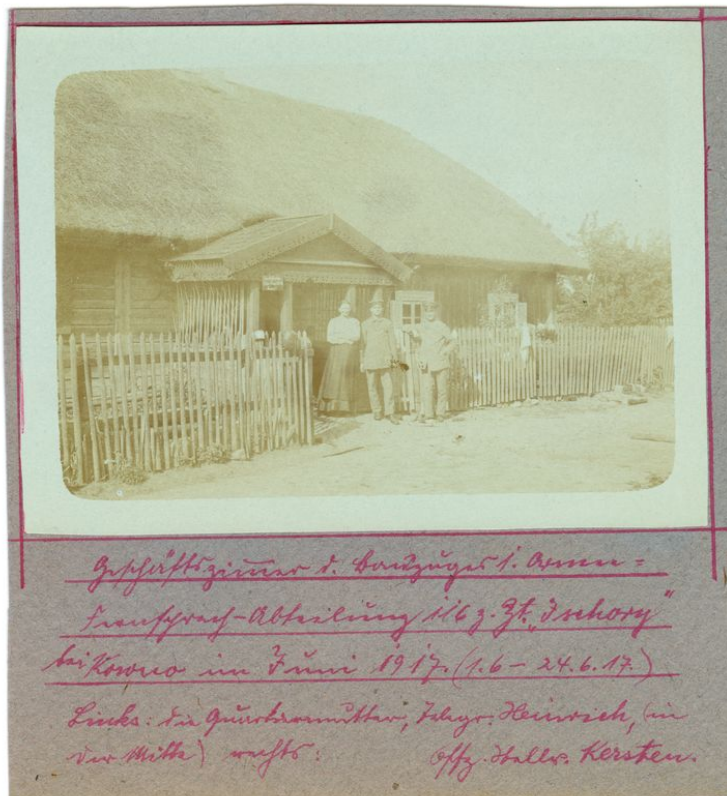 Geschäftszimmer d. Bauzuges 1. Armee-
Fernsprech-Abteilung 116 z. Zt. „Ischory“
bei Kowno im Juni 1917. (1.6 – 24.6.17.)
Links: die Quartiermutter, Telegr. Heinrich, (in
der Mitte) rechts: Offz. Stellv. Kersten.